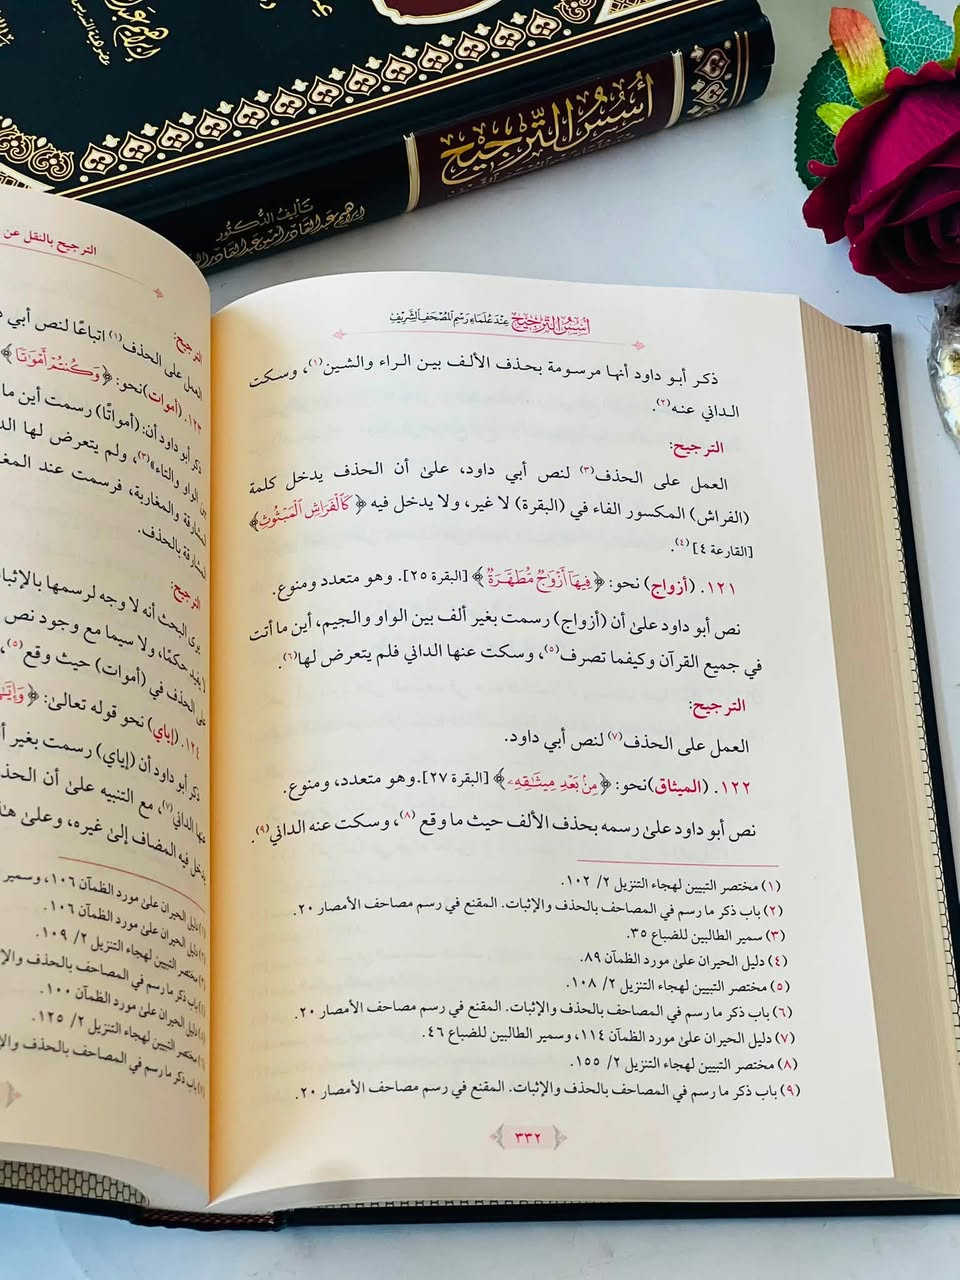 أسس الترجيح
تأليف الدكتور
أسس الترجيح عند علماء رسم المصحف الشريف
ذكر أبو داود أنها مرسومة بحذف الألف بين الراء والشين(١)، وسكت
الداني عنه(٢).
الترجيح:
العمل على الحذف(٣) لنص أبي داود، على أن الحذف يدخل كلمة
(الفراش) المكسور الفاء في (البقرة) لا غير، ولا يدخل فيه ﴿كَٱلْفَرَاشِ ٱلْمَبْثُوثِ﴾
[القارعة ٤](٤).
١٢١. (أزواج) نحو: ﴿فِيهَآ أَزْوَٰجٌ مُّطَهَّرَةٌ﴾ [البقرة ٢٥]. وهو متعدد ومنوع.
نص أبو داود على أن (أزواج) رسمت بغير ألف بين الواو والجيم، أين ما أتت
في جميع القرآن وكيفما تصرف(٥)، وسكت عنها الداني فلم يتعرض لها(٦).
الترجيح:
العمل على الحذف(٧) لنص أبي داود.
١٢٢. (الميثاق) نحو: ﴿مِنۢ بَعْدِ مِيثَٰقِهِۦ﴾ [البقرة ٢٧]. وهو متعدد، ومنوع.
نص أبو داود على رسمه بحذف الألف حيث ما وقع(٨)، وسكت عنه الداني(٩).
(١) مختصر التبيين لهجاء التنزيل ٢/ ١٠٢.
(٢) باب ذكر ما رسم في المصاحف بالحذف والإثبات. المقنع في رسم مصاحف الأمصار ٢٠.
(٣) سمير الطالبين للضباع ٣٥.
(٤) دليل الحيران على مورد الظمآن ٨٩.
(٥) مختصر التبيين لهجاء التنزيل ٢/ ١٠٨.
(٦) باب ذكر ما رسم في المصاحف بالحذف والإثبات. المقنع في رسم مصاحف الأمصار ٢٠.
(٧) دليل الحيران على مورد الظمآن ١١٤، وسمير الطالبين للضباع ٤٦.
(٨) مختصر التبيين لهجاء التنزيل ٢/ ١٥٥.
(٩) باب ذكر ما رسم في المصاحف بالحذف والإثبات. المقنع في رسم مصاحف الأمصار ٢٠.
٣٣٢
الترجيح بالنقل عن
الترجيح:
العمل على الحذف(١) إتباعًا لنص أبي
١٢٣. (أموات) نحو: ﴿وَكُنتُمْ أَمْوَٰتًا﴾
ذكر أبو داود أن: (أمواتًا) رسمت أين ما
الواو والتاء»(٣)، ولم يتعرض لها
المشارقة والمغاربة، فرسمت عند
المشارقة بالحذف.
الترجيح:
يرى البحث أنه لا وجه لرسمها بالإثبات
حكمًا، ولا سيما مع وجود نص
على الحذف في (أموات) حيث وقع(٥)،
١٢٤. (إياي) نحو قوله تعالى:
ذكر أبو داود أن (إياي) رسمت بغير
الداني(٧)، مع التنبيه على أن
يدخل فيه المضاف إلى غيره، وعلى
دليل الحيران على مورد الظمآن ١٠٦، وسمير
دليل الحيران على مورد الظمآن ١٠٦.
مختصر التبيين لهجاء التنزيل ٢/ ١٠٩.
باب ذكر ما رسم في المصاحف بالحذف
دليل الحيران على مورد الظمآن ١٠٠.
مختصر التبيين لهجاء التنزيل ٢/ ١٢٥.
باب ذكر ما رسم في المصاحف بالحذف